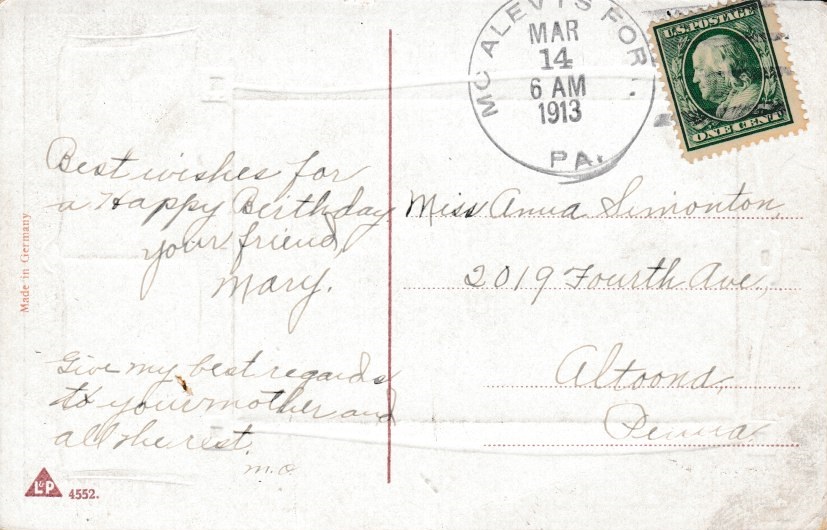 MC ALEVYS FORT
MAR
14
6 AM
1913
PA.
U.S. POSTAGE
ONE CENT
Best wishes for
a Happy Birthday,
your friend,
Mary.
Give my best regards
to your mother and
all the rest.
M.C.
Miss Anna Simonton,
2019 Fourth Ave,
Altoona,
Penna
Made in Germany
L&P
4552.